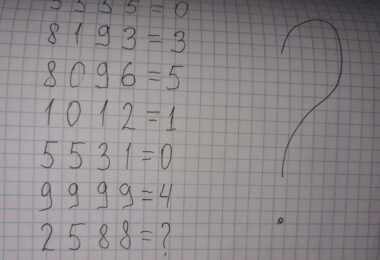 5555=0
8193=3
8096=5
1012=1
5531=0
9999=4
2588=?
?